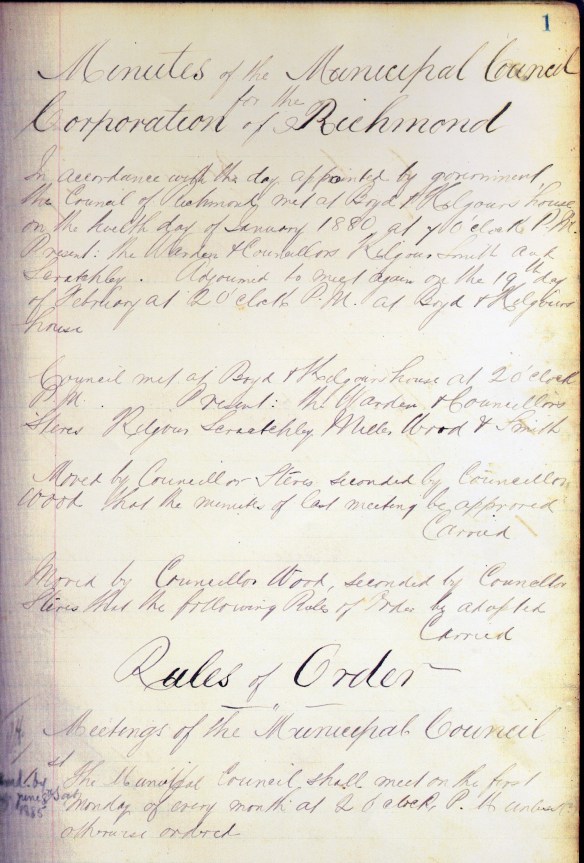 1
Minutes of the Municipal Council
for the
Corporation of Richmond
In accordance with the day appointed by government
the Council of Richmond met at Boyd & Kilgours house
on the twelth day of January 1880 at 7 O'clock P.M.
Present: the Warden & Councillors Kilgour Smith and
Scratchley. Adjourned to meet again on the 19th day
of February at 2 O'cloth P.M. at Boyd & Kilgours
house
Council met at Boyd & Kilgours house at 2 o'clock
P.M. Present: the Warden & Councillors
Steves Kilgour Scratchley Miller Wood & Smith
Moved by Councillor Steves seconded by Councillor
Wood that the minutes of last meeting be approved
Carried
Moved by Councillor Wood, seconded by Councillor
Steves that the following Rules of Order be adopted
Carried
Rules of Order
Meetings of the Municipal Council
1st
The Municipal Council shall meet on the first
Monday of every month at 2 O'clock, P. M unless
otherwise ordered
by
June
1885